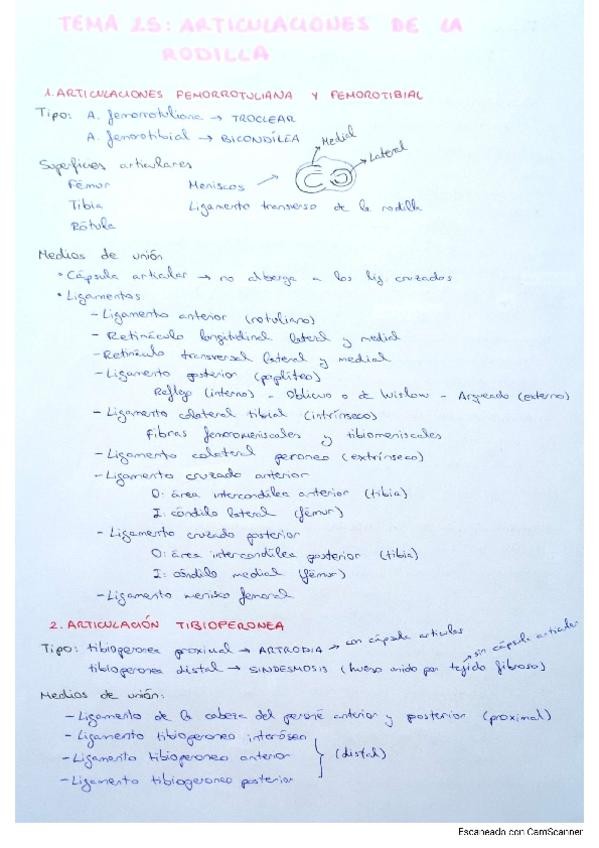 TEMA 25: ARTICULACIONES DE LA
RODILLA
1. ARTICULACIONES FEMORROTULIANA Y FEMOROTIBIAL
Tipo: A. femorrotuliana → TROCLEAR
A. femorotibial → BICONDÍLEA
Medial
Lateral
Superficies articulares
Fémur
Meniscos
Tibia
Ligamento transverso de la rodilla
Rótula
Medios de unión
• Cápsula articular → no alberga a los lig. cruzados
• Ligamentos
- Ligamento anterior (rotuliano)
- Retináculo longitudinal lateral y medial
- Retináculo transversal lateral y medial
- Ligamento posterior (poplíteo)
Reflejo (interno) - Oblicuo o de Wislow - Arqueado (externo)
- Ligamento colateral tibial (intrínseco)
Fibras femoromeniscales y tibiomeniscales
- Ligamento colateral peroneo (extrínseco)
- Ligamento cruzado anterior
O: área intercondílea anterior (tibia)
I: cóndilo lateral (fémur)
- Ligamento cruzado posterior
O: área intercondílea posterior (tibia)
I: cóndilo medial (fémur)
- Ligamento menisco femoral
2. ARTICULACIÓN TIBIOPERONEA
Tipo: tibioperonea proximal → ARTRODIA → con cápsula articular
tibioperonea distal → SINDESMOSIS (hueso unido por tejido fibroso) → sin cápsula articular
Medios de unión:
- Ligamento de la cabeza del peroné anterior y posterior (proximal)
- Ligamento tibioperoneo interóseo
- Ligamento tibioperoneo anterior
(distal)
- Ligamento tibioperoneo posterior
Escaneado con CamScanner